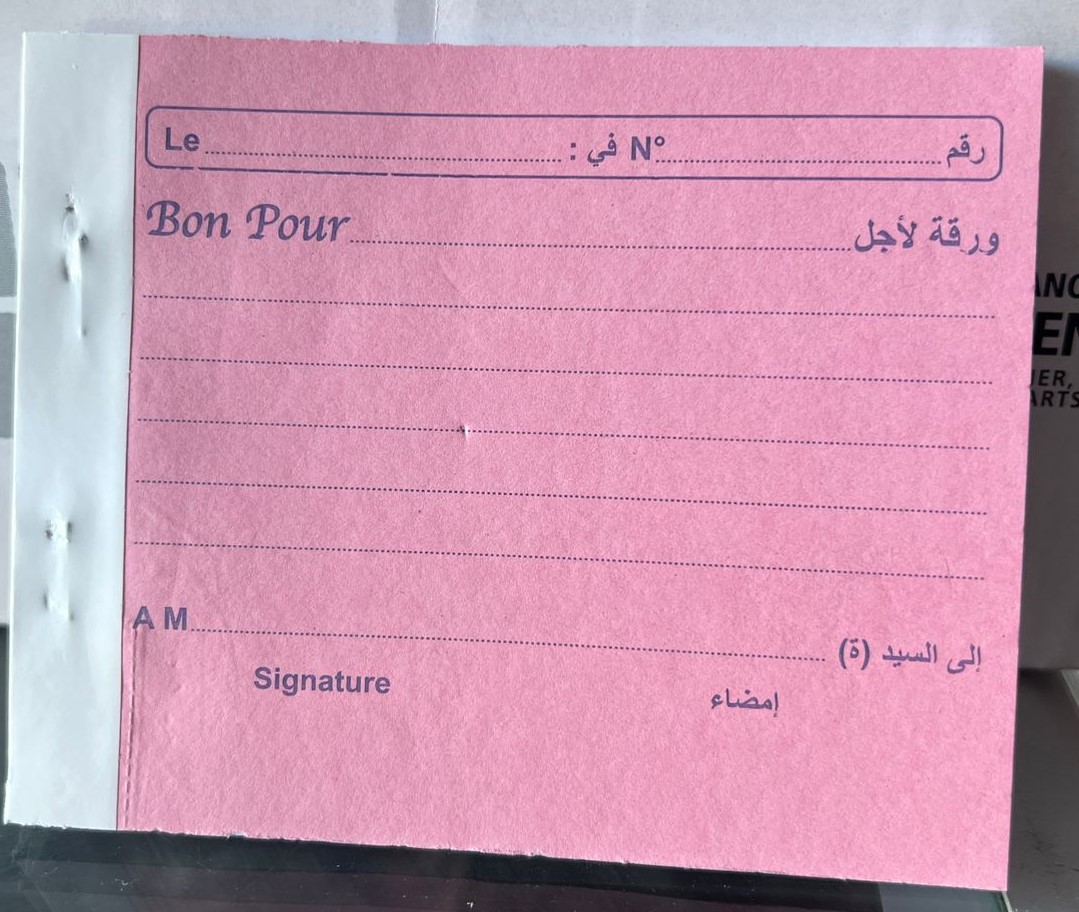 Le.......................................................... : في N°.......................................................... رقم
Bon Pour.......................................................... ورقة لأجل
A M.......................................................... إلى السيد (ة)
Signature إمضاء
ER,
ARTS